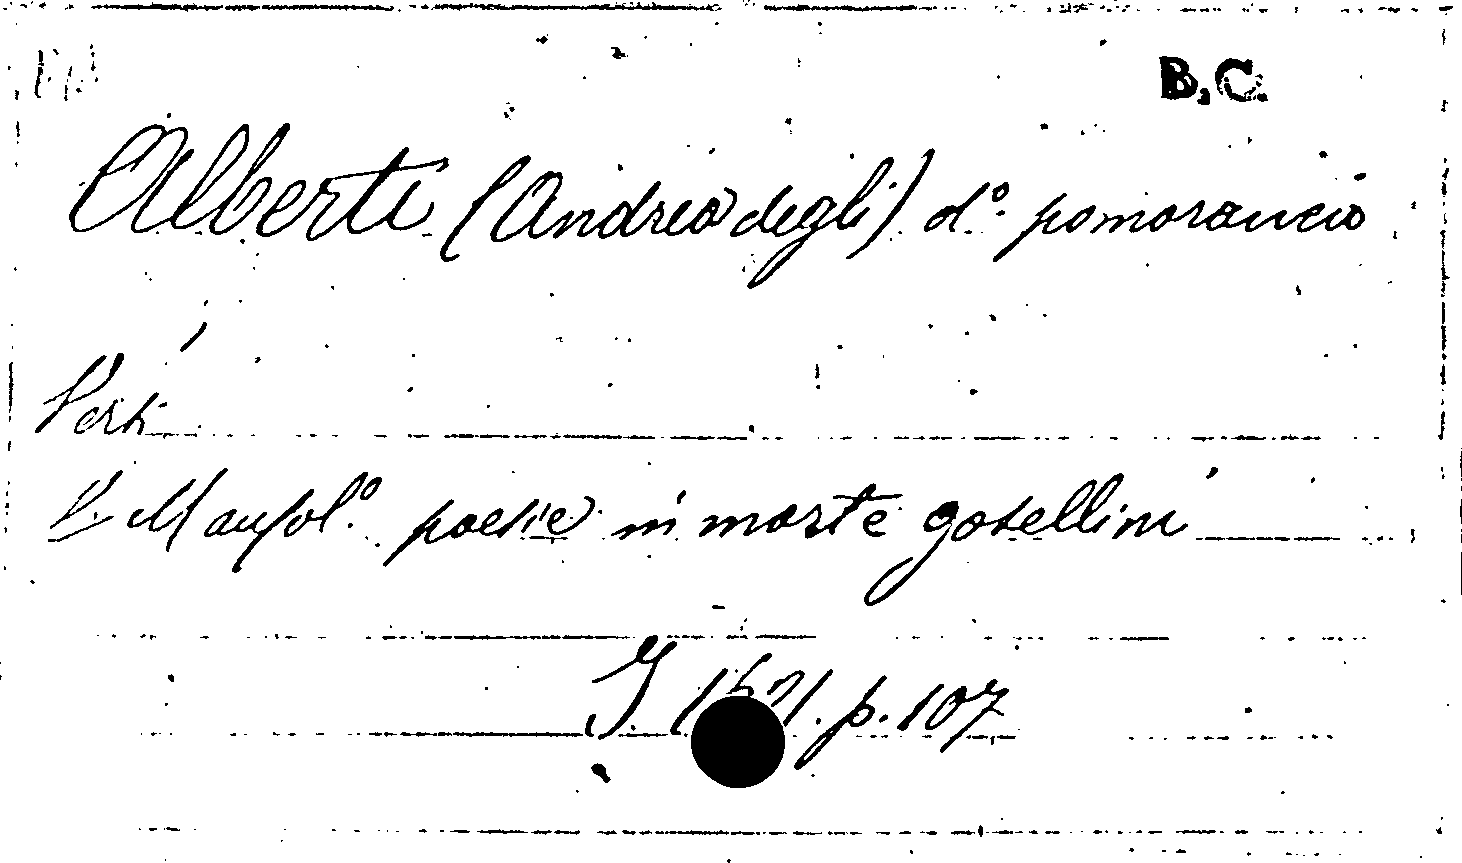 B.C.
Alberti (Andrea degli) d.º pomarancio
Versi
V. Mausol.º poesie in morte gosellini
p. 107